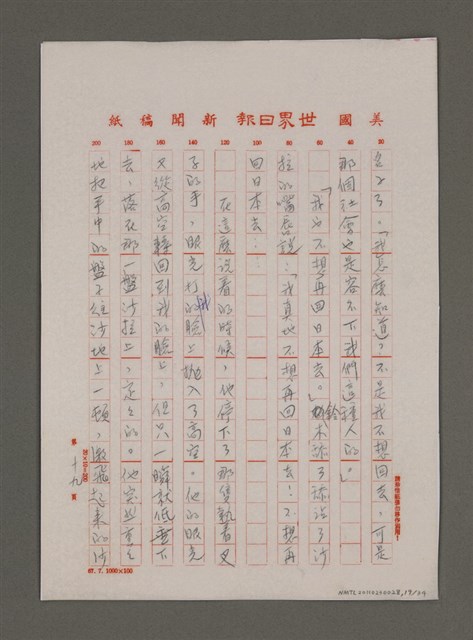 美國世界日報新聞稿紙
20 40 60 80 100 120 140 160 180 200
是了。「我怎麼知道？不是我不想回去，可是
那個社會也是容不下我們這種人的。」
「我也不想再回日本去。」鈴木舔了舔沾了沙
拉的嘴唇說：「我真地不想再回日本去！不想再
回日本去……
在這麼說着的時候，他停下了那隻執着叉
子的手，眼光打我的臉上拋入了高空。他的眼光
又從高空轉回到我的臉上，但只一瞬就低垂下
去，落在那一盤沙拉上，定定的。他突然重重
地把手中的盤子往沙地上一頓，激飛起來的沙
第十九頁
20×10=200
67. 7. 1000×100
NMTL20110290028,19/24